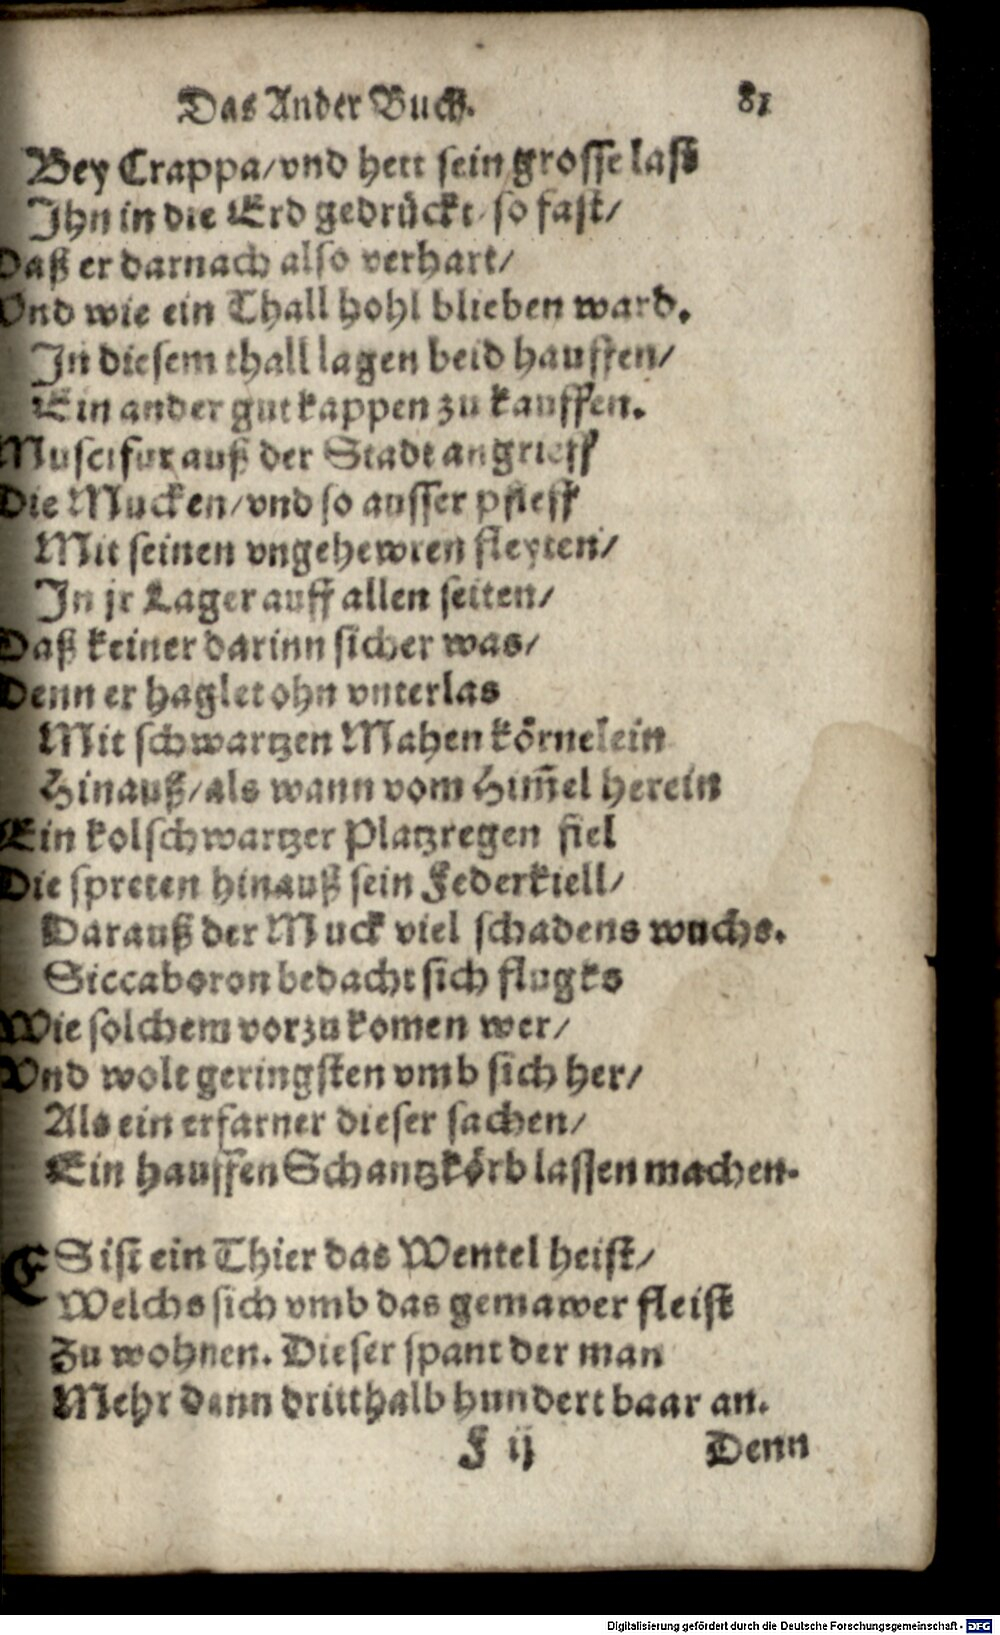 Das Ander Buch. 81
Bey Crappa/vnd hett sein grosse last
Jhn in die Erd gedrückt/so fast/
Daß er darnach also verhart/
Vnd wie ein Thall hohl blieben ward.
Jn diesem thall lagen beid hauffen/
Ein ander gut kappen zu kauffen.
Muscifur auß der Stadt angrieff
Die Mucken/vnd so ausser pfieff
Mit seinen vngehewren fleyten/
Jn jr Lager auff allen seiten/
Daß keiner darinn sicher was/
Denn er haglet ohn vnterlas
Mit schwartzen Mahen körnelein
Hinauß/als wann vom Him̃el herein
Ein kolschwartzer Platzregen fiel
Die spreten hinauß sein Federkiell/
Darauß der Muck viel schadens wuchs.
Siccaboron bedacht sich flugks
Wie solchem vorzukomen wer/
Vnd wolt geringsten vmb sich her/
Als ein erfarner dieser sachen/
Ein hauffen Schantzkörb lassen machen.
ES ist ein Thier das Wentel heist/
Welchs sich vmb das gemawer fleist
Zu wohnen. Dieser spant der man
Mehr dann dritthalb hundert baar an.
F ij Denn
Digitalisierung gefördert durch die Deutsche Forschungsgemeinschaft - DFG